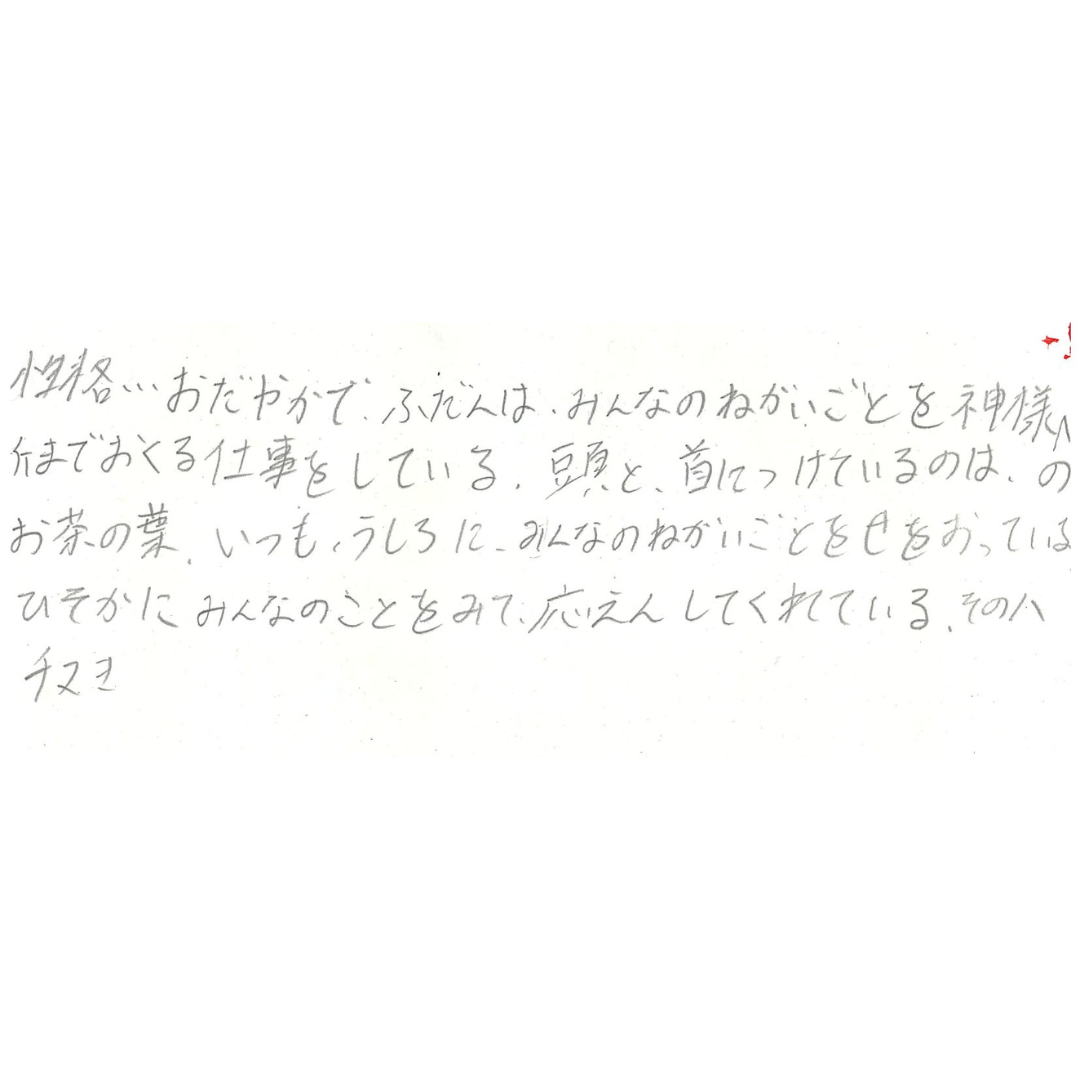 性格…おだやかで、ふだんは、みんなのねがいごとを神様へ
行までおくる仕事をしている、頭と、首につけているのは、の
お茶の葉、いつも、うしろに、みんなのねがいごとをせをおっている
ひそかにみんなのことをみて、応えんしてくれている、その八
チヌキ